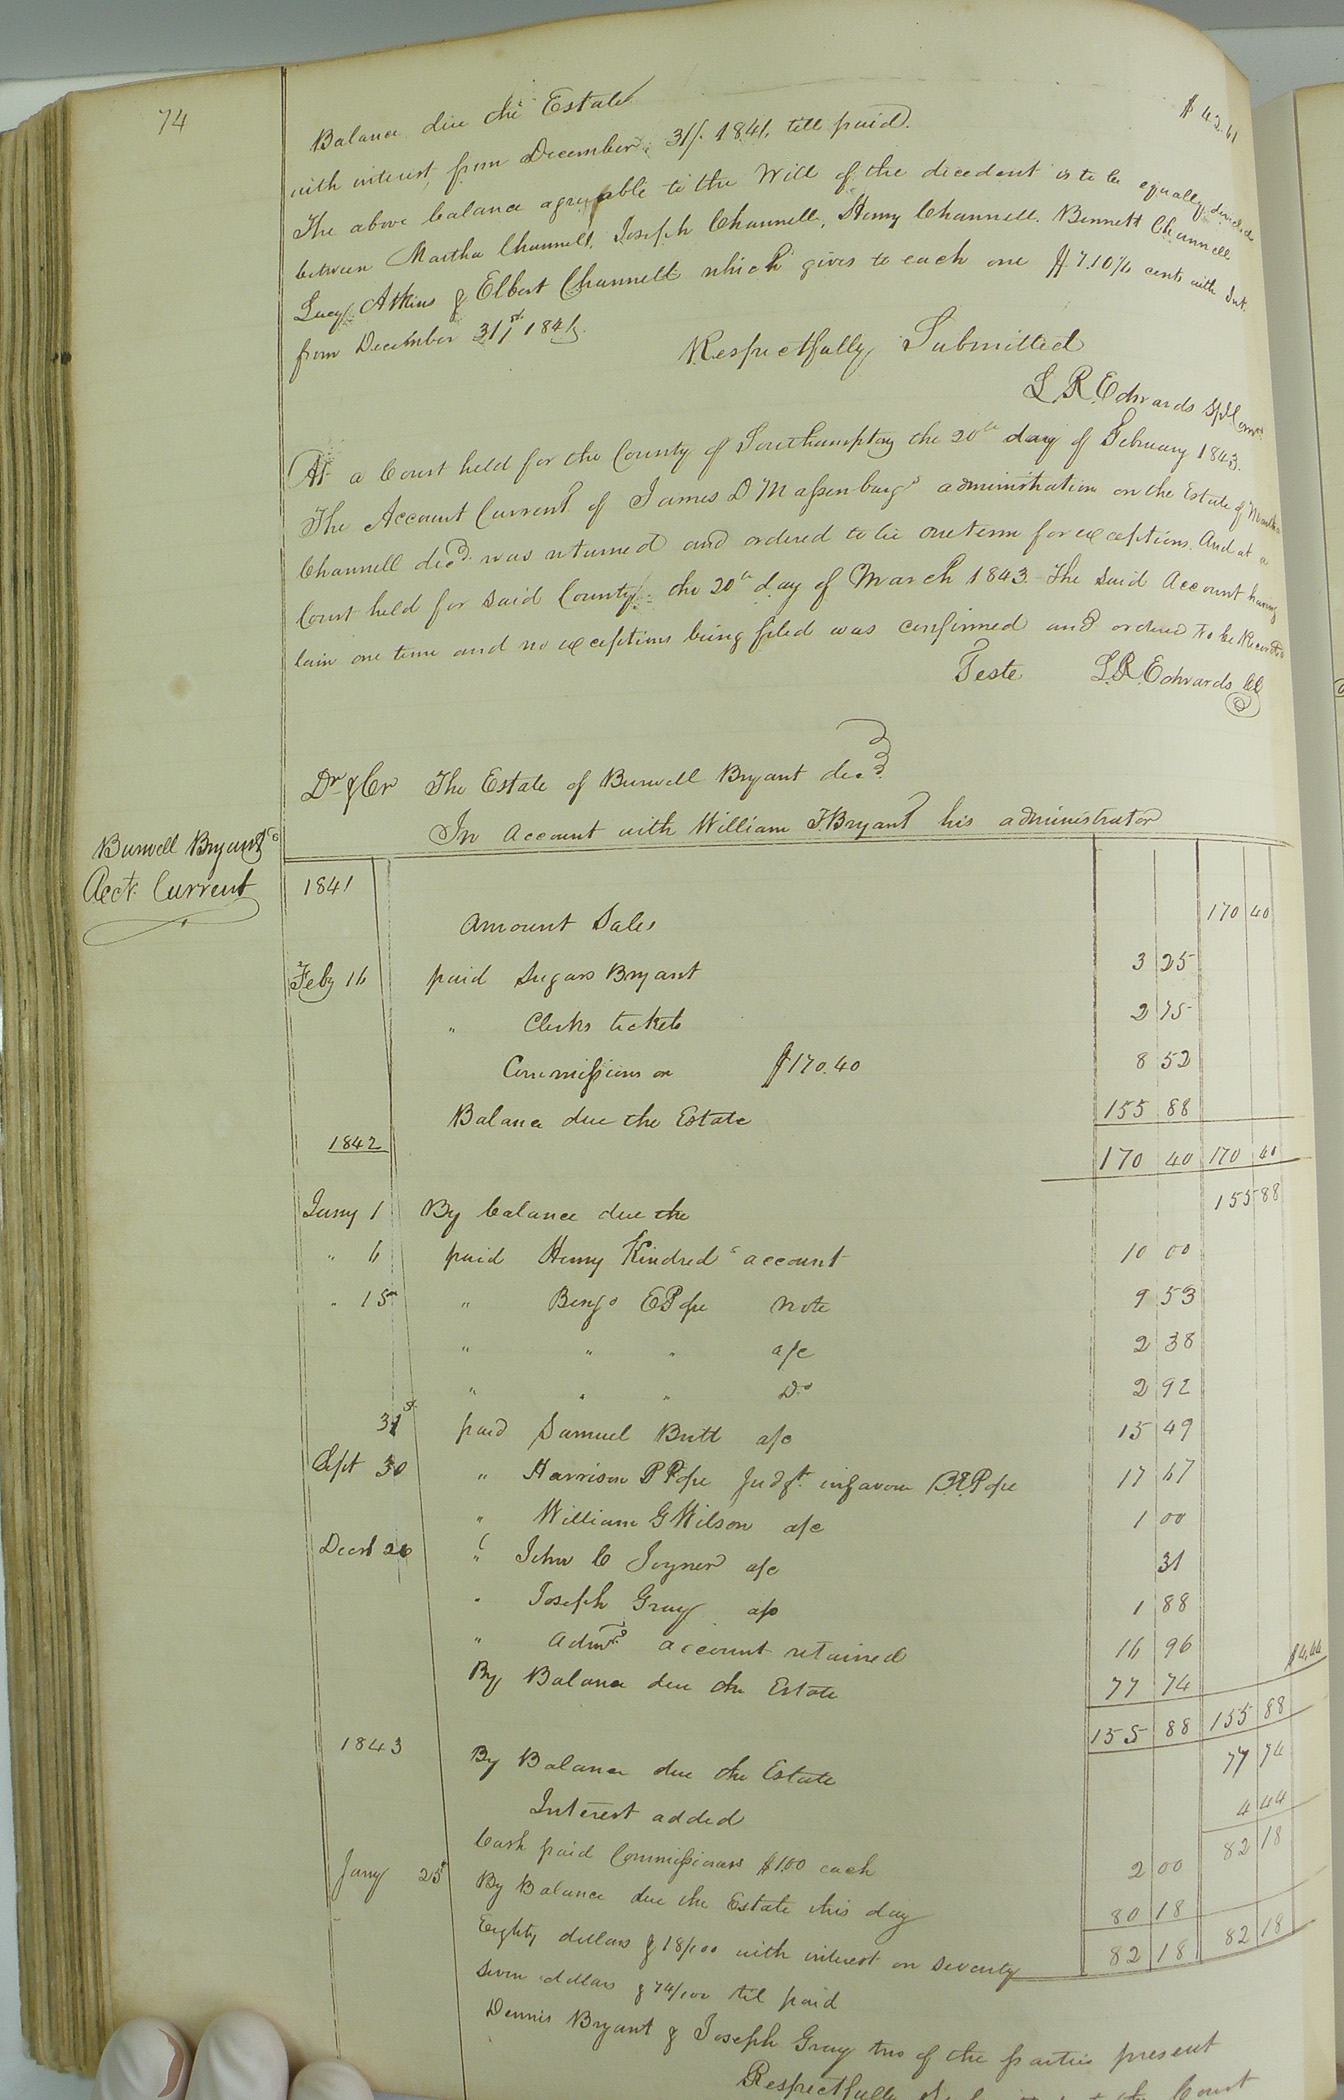 74
Balance due the Estate $42.61
with interest from December 31st. 1841, till paid.
The above balance agreeable to the Will of the decedent is to be equally divided
between Martha Channell, Joseph Channell, Henry Channell, Bennett Channell
Lucy Atkins & Elbert Channell which gives to each one $7.10 1/6 cents with Int.
from December 31st 1841.
Respectfully Submitted
L R Edwards Spl Comr.
At a Court held for the County of Southampton the 20th day of February 1843.
The Account Current of James D Massenburgs administration on the Estate of
Channell decd. was returned and ordered to lie one term for exceptions. And at a
Court held for said County the 20th day of March 1843. The said Account having
lain one term and no exceptions being filed was confirmed and ordered to be Recorded
Teste L. R. Edwards Cl
Burwell Bryants
Acct. Current
Dr & Cr The Estate of Burwell Bryant decd.
In Account with William F. Bryant his administrator
1841
Amount Sales 170 40
Feby 16 paid Sugars Bryant 3 25
" Clerks tickets 2 75
Commissions on $170.40 8 52
Balance due the Estate 155 88
1842 170 40 170 40
Jany 1 By balance due the 155 88
" 6 paid Henry Kindred s account 10 00
" 15 " Benjn E Pope note 9 53
" " " a/c 2 38
" " " Do 2 92
31st paid Samuel Britt a/c 15 49
Sept 30 " Harrison P Pope Judgt. in favour B E Pope 17 67
" William G Wilson a/c 1 00
Decr 26 " John C Joyner a/c 31
" Joseph Gray a/c 1 88
" Admrs account retained 16 96
By Balance due the Estate 77 74 $4.44
155 88 155 88
1843 By Balance due the Estate 77 74
Interest added 4 44
82 18
Cash paid Commissioners $1.00 each 2 00
Jany 25 By Balance due the Estate this day 80 18
82 18 82 18
Eighty dollars & 18/100 with interest on seventy
seven dollars & 74/100 til paid
Dennis Bryant & Joseph Gray two of the parties present
Respectfully Court